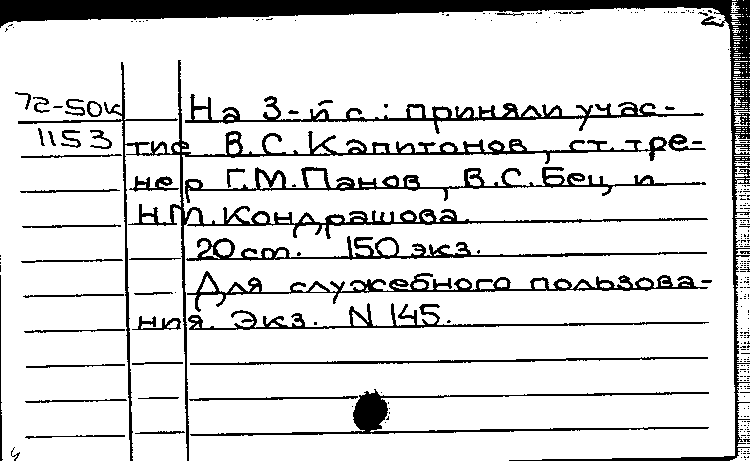 2
72-50к На 3-й с.: приняли учас-
1153 тие В.С. Капитонов, ст. тре-
нер Г.М. Панов, В.С. Бец и
Н.М. Кондрашова.
20 ст. 150 экз.
Для служебного пользова-
ния. Экз. N 145.